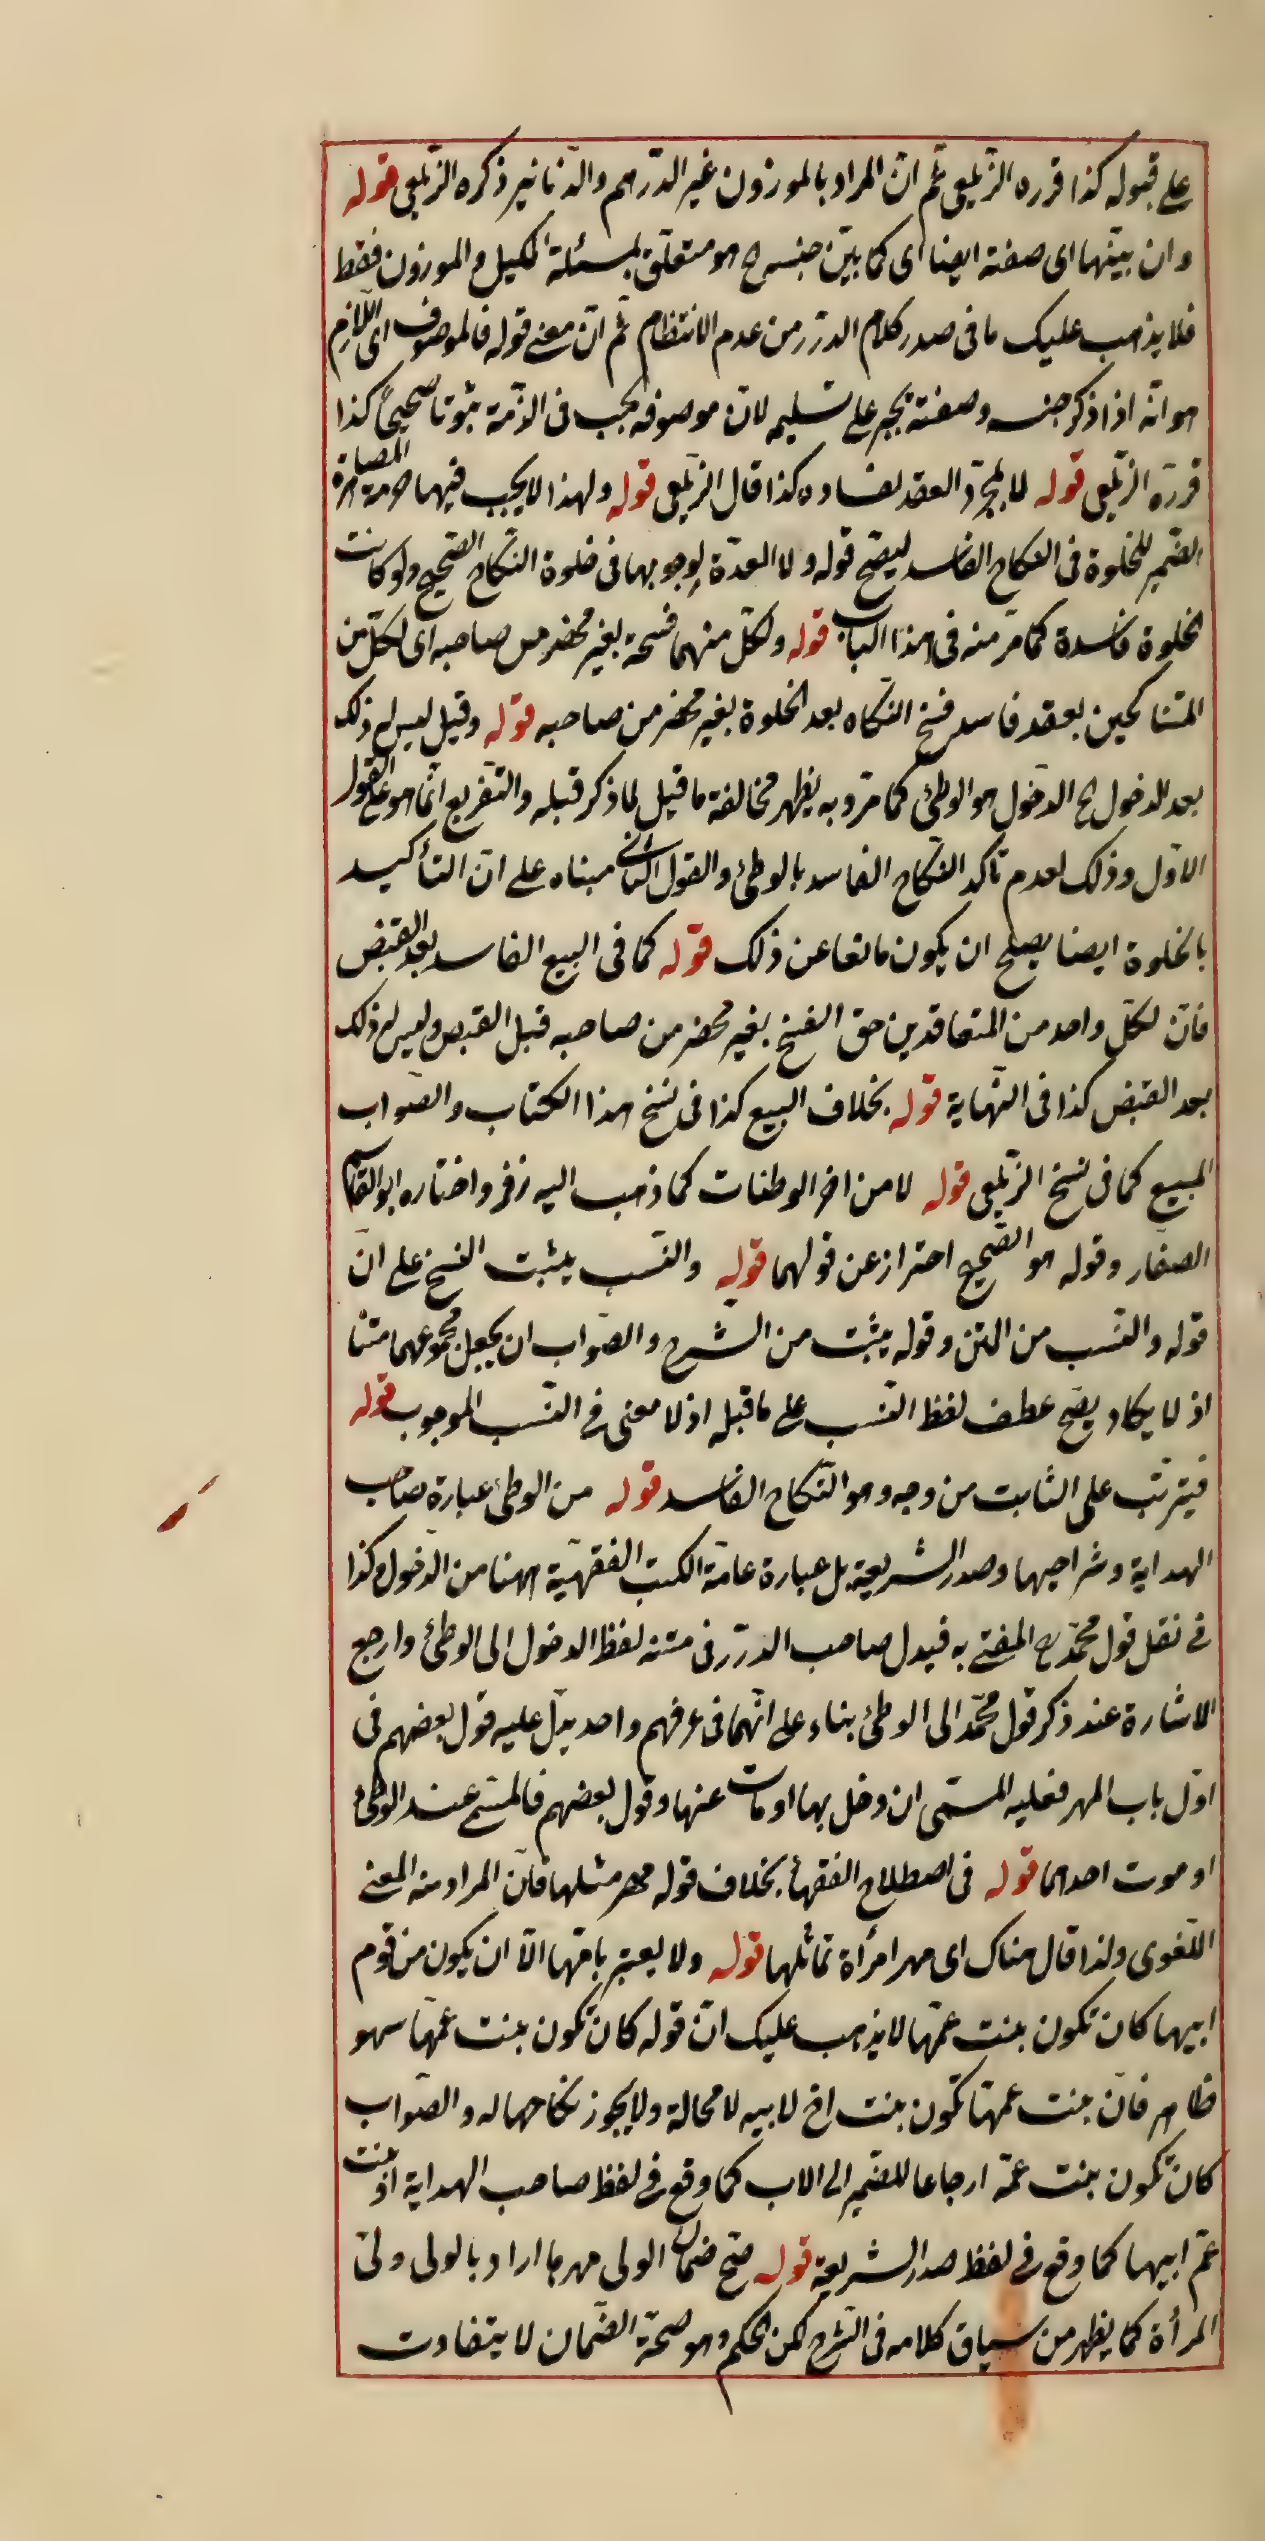 على قبوله كذا قرره الزّيلعى ثم انّ المراد بالموزون غير الدّرهم والدّنانير ذكره الزّيلعى قوله
وان بيّنها اى صفته ايضا اى كما بيّن جنسه هو متعلّق بمسئلة المكيل والموزون فقط
فلا يذهب عليك ما فى صدر كلام الدرر من عدم الانتظام ثم انّ معنى قوله فالموصوف اى اللّازم
هو انّه اذا ذكر جنسه وصفته يجبر على تسليمه لانّ موصوفه يجب فى الذّمة ثبوتا صحيحا كذا
قرره الزّيلعى قوله لا بمجرّد العقد لفساده كذا قال الزّيلعى قوله ولهذا لا يجب فيها حرمة المصاهرة
الضّمير للخلوة فى النكاح الفاسد ليصحّ قوله ولا العدّة لوجوبها فى خلوة النّكاح الصّحيح ولو كانت
الخلوة فاسدة كما مرّ منه فى هذا الباب قوله ولكلّ منهما فسخه بغير محضر من صاحبه اى لكلّ من
المتناكحين بعقد فاسد فسخ النّكاه بعد الخلوة بغير محضر من صاحبه قوله وقيل ليس له ذلك
بعد الدخول الدّخول هو الوطئ كما مرّ وبه يظهر مخالفة ما قيل لما ذكر قبله والتّفريع انّما هو على القول
الاوّل وذلك لعدم تأكد النّكاح الفاسد بالوطئ والقول الثانى مبناه على انّ التأكيد
بالخلوة ايضا يصلح ان يكون مانعا عن ذلك قوله كما فى البيع الفاسد بعد القبض
فانّ لكلّ واحد من المتعاقدين حق الفسخ بغير محضر من صاحبه قبل القبض وليس له ذلك
بعد القبض كذا فى النّهاية قوله بخلاف البيع كذا فى نسخ هذا الكتاب والصّواب
المبيع كما فى نسخ الزّيلعى قوله لا من اخر الوطئات كما ذهب اليه زفر واختاره ابو القاسم
الصفّار وقوله هو الصّحيح احتراز عن قولهما قوله والنّسب يثبت النسخ على انّ
قوله والنّسب من المتن وقوله يثبت من الشرح والصّواب ان يجعل مجموعهما متنا
اذ لا يكاد يصحّ عطف لفظ النّسب على ما قبله اذ لا معنى فى النّسب الموجوب قوله
فيترتّب على الثابت من وجه وهو النّكاح الفاسد قوله من الوطئ عبارة صاحب
الهداية وشراحيها وصدر الشريعة بل عبارة عامّة الكتب الفقهيّة ههنا من الدّخول وكذا
فى نقل قول محمّد المفتى به فبدل صاحب الدرر فى متنه لفظ الدخول الى الوطئ وارجع
الاشارة عند ذكر قول محمّد الى الوطئ بناء على انّهما فى عرفهم واحد يدلّ عليه قول بعضهم فى
اوّل باب المهر فعليه المسمّى ان دخل بها او مات عنها وقول بعضهم فالمسمّى عند الوطئ
او موت احدهما قوله فى اصطلاح الفقهاء بخلاف قوله مهر مثلها فانّ المراد منه المعنى
اللّغوى ولذا قال هناك اى مهر امرأة تماثلها قوله ولا يعتبر بامّها الّا ان يكون من قوم
ابيها كان تكون بنت عمّها لا يذهب عليك انّ قوله كان تكون بنت عمّها سهو
ظاهر فانّ بنت عمّها تكون بنت اخ لابيه لا محالة ولا يجوز نكاحها له والصّواب
كان تكون بنت عمّه ارجاعا للضّمير الى الاب كما وقع فى لفظ صاحب الهداية او بنت
عمّ ابيها كما وقع فى لفظ صدر الشريعة قوله صحّ ضمان الولى مهرها اراد بالولى ولىّ
المرأة كما يظهر من سياق كلامه فى الشّرح لكن الحكم وهو صحّة الضّمان لا يتفاوت